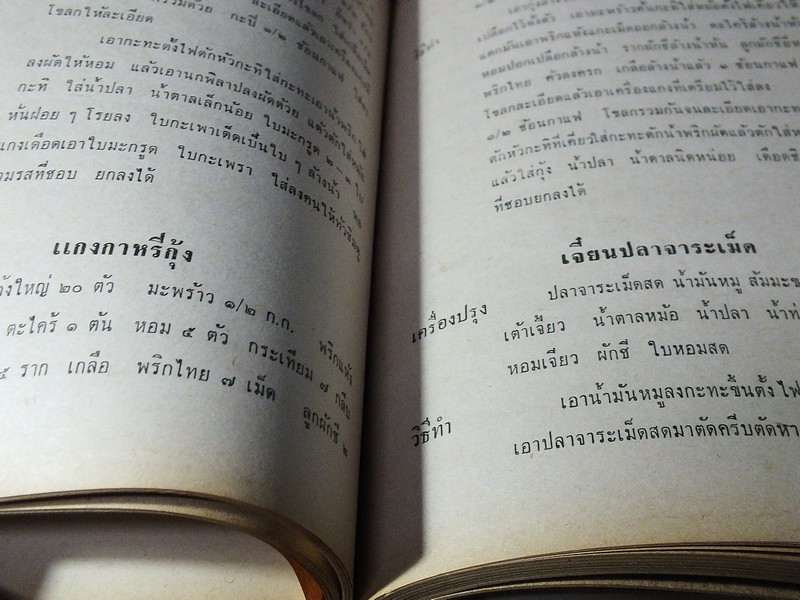 โขลกให้ละเอียด
เอากะทะตั้งไฟตักหัวกะทิใส่กะทะเอาน้ำพริกใส่
ลงผัดให้หอม แล้วเอานกพิลาปลงผัดด้วย แล้วตักใส่หม้อ
กะทิ ใส่น้ำปลา น้ำตาลเล็กน้อย ใบมะกรูด ๒ - ๓ ใบ
หั่นฝอย ๆ โรยลง ใบกะเพาเด็ดเป็นใบ ๆ ล้างน้ำ พอ
แกงเดือดเอาใบมะกรูด ใบกะเพรา ใส่ลงคนให้ทั่วชิมดู
ตามรสที่ชอบ ยกลงได้
แกงกาหรี่กุ้ง
กุ้งใหญ่ ๒๐ ตัว มะพร้าว ๑/๒ ก.ก. พริกแห้ง
ตะไคร้ ๑ ต้น หอม ๕ ตัว กระเทียม ๗ กลีบ
๕ ราก เกลือ พริกไทย ๗ เม็ด ลูกผักชี ๒
วิธีทำ
เปลือกไว้ตั้งตัว เอามะพร้าวคั้นกะทิใส่หม้อตั้งไฟเคี่ยว
แตกมันเอาพริกแห้งแกะเม็ดออกล้างน้ำ ตะไคร้ล้างน้ำหั่น
หอมปอกเปลือกล้างน้ำ รากผักชีล้างน้ำหั่น ลูกผักชียี่หร่า
พริกไทย คั่วลงครก เกลือล้างน้ำแล้ว ๑ ช้อนกาแฟ
โขลกละเอียดแล้วเอาเครื่องแกงที่เตรียมไว้ใส่ลง
๑/๒ ช้อนกาแฟ โขลกรวมกันจนละเอียดเอากะทะ
ตักหัวกะทิที่เคี่ยวใส่กะทะตักน้ำพริกผัดแล้วตักใส่หม้อ
แล้วใส่กุ้ง น้ำปลา น้ำตาลนิดหน่อย เดือดชิม
ที่ชอบยกลงได้
เจี๋ยนปลาจาระเม็ด
เครื่องปรุง ปลาจาระเม็ดสด น้ำมันหมู ส้มมะขาม
เต้าเจี้ยว น้ำตาลหม้อ น้ำปลา น้ำท่า
หอมเจียว ผักชี ใบหอมสด
วิธีทำ เอาน้ำมันหมูลงกะทะขึ้นตั้งไฟ
เอาปลาจาระเม็ดสดมาตัดครีบตัดหาง